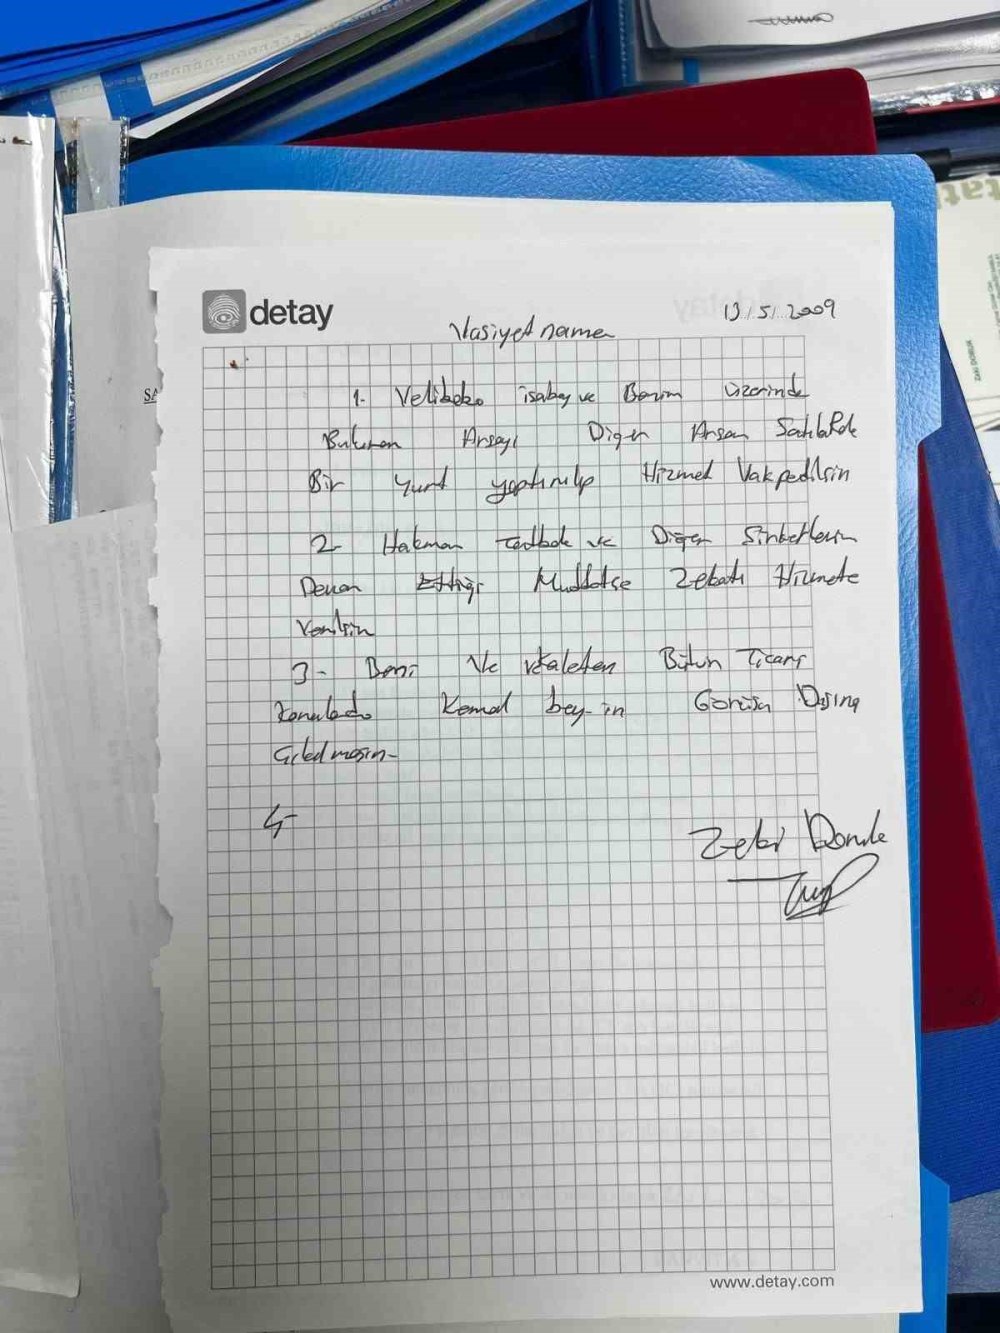 detay
19.5.2009
Vasiyetname
1- Velibaba isabey ve Benim üzerinde
Bulunan Arsayı Diger Arsam Satılıp
Bir Yurt yaptırılıp Hizmet Vakpedilsin
2- ve Diger Sirketlerin
Devam Ettigi Muddetce Zekatı Hizmete
Verilsin
3- Beni Ve vekaleten Bütun Ticari
konularda Kemal bey-in Görüsü Dısına
Cıkılmasın-
4-
Zeki
www.detay.com